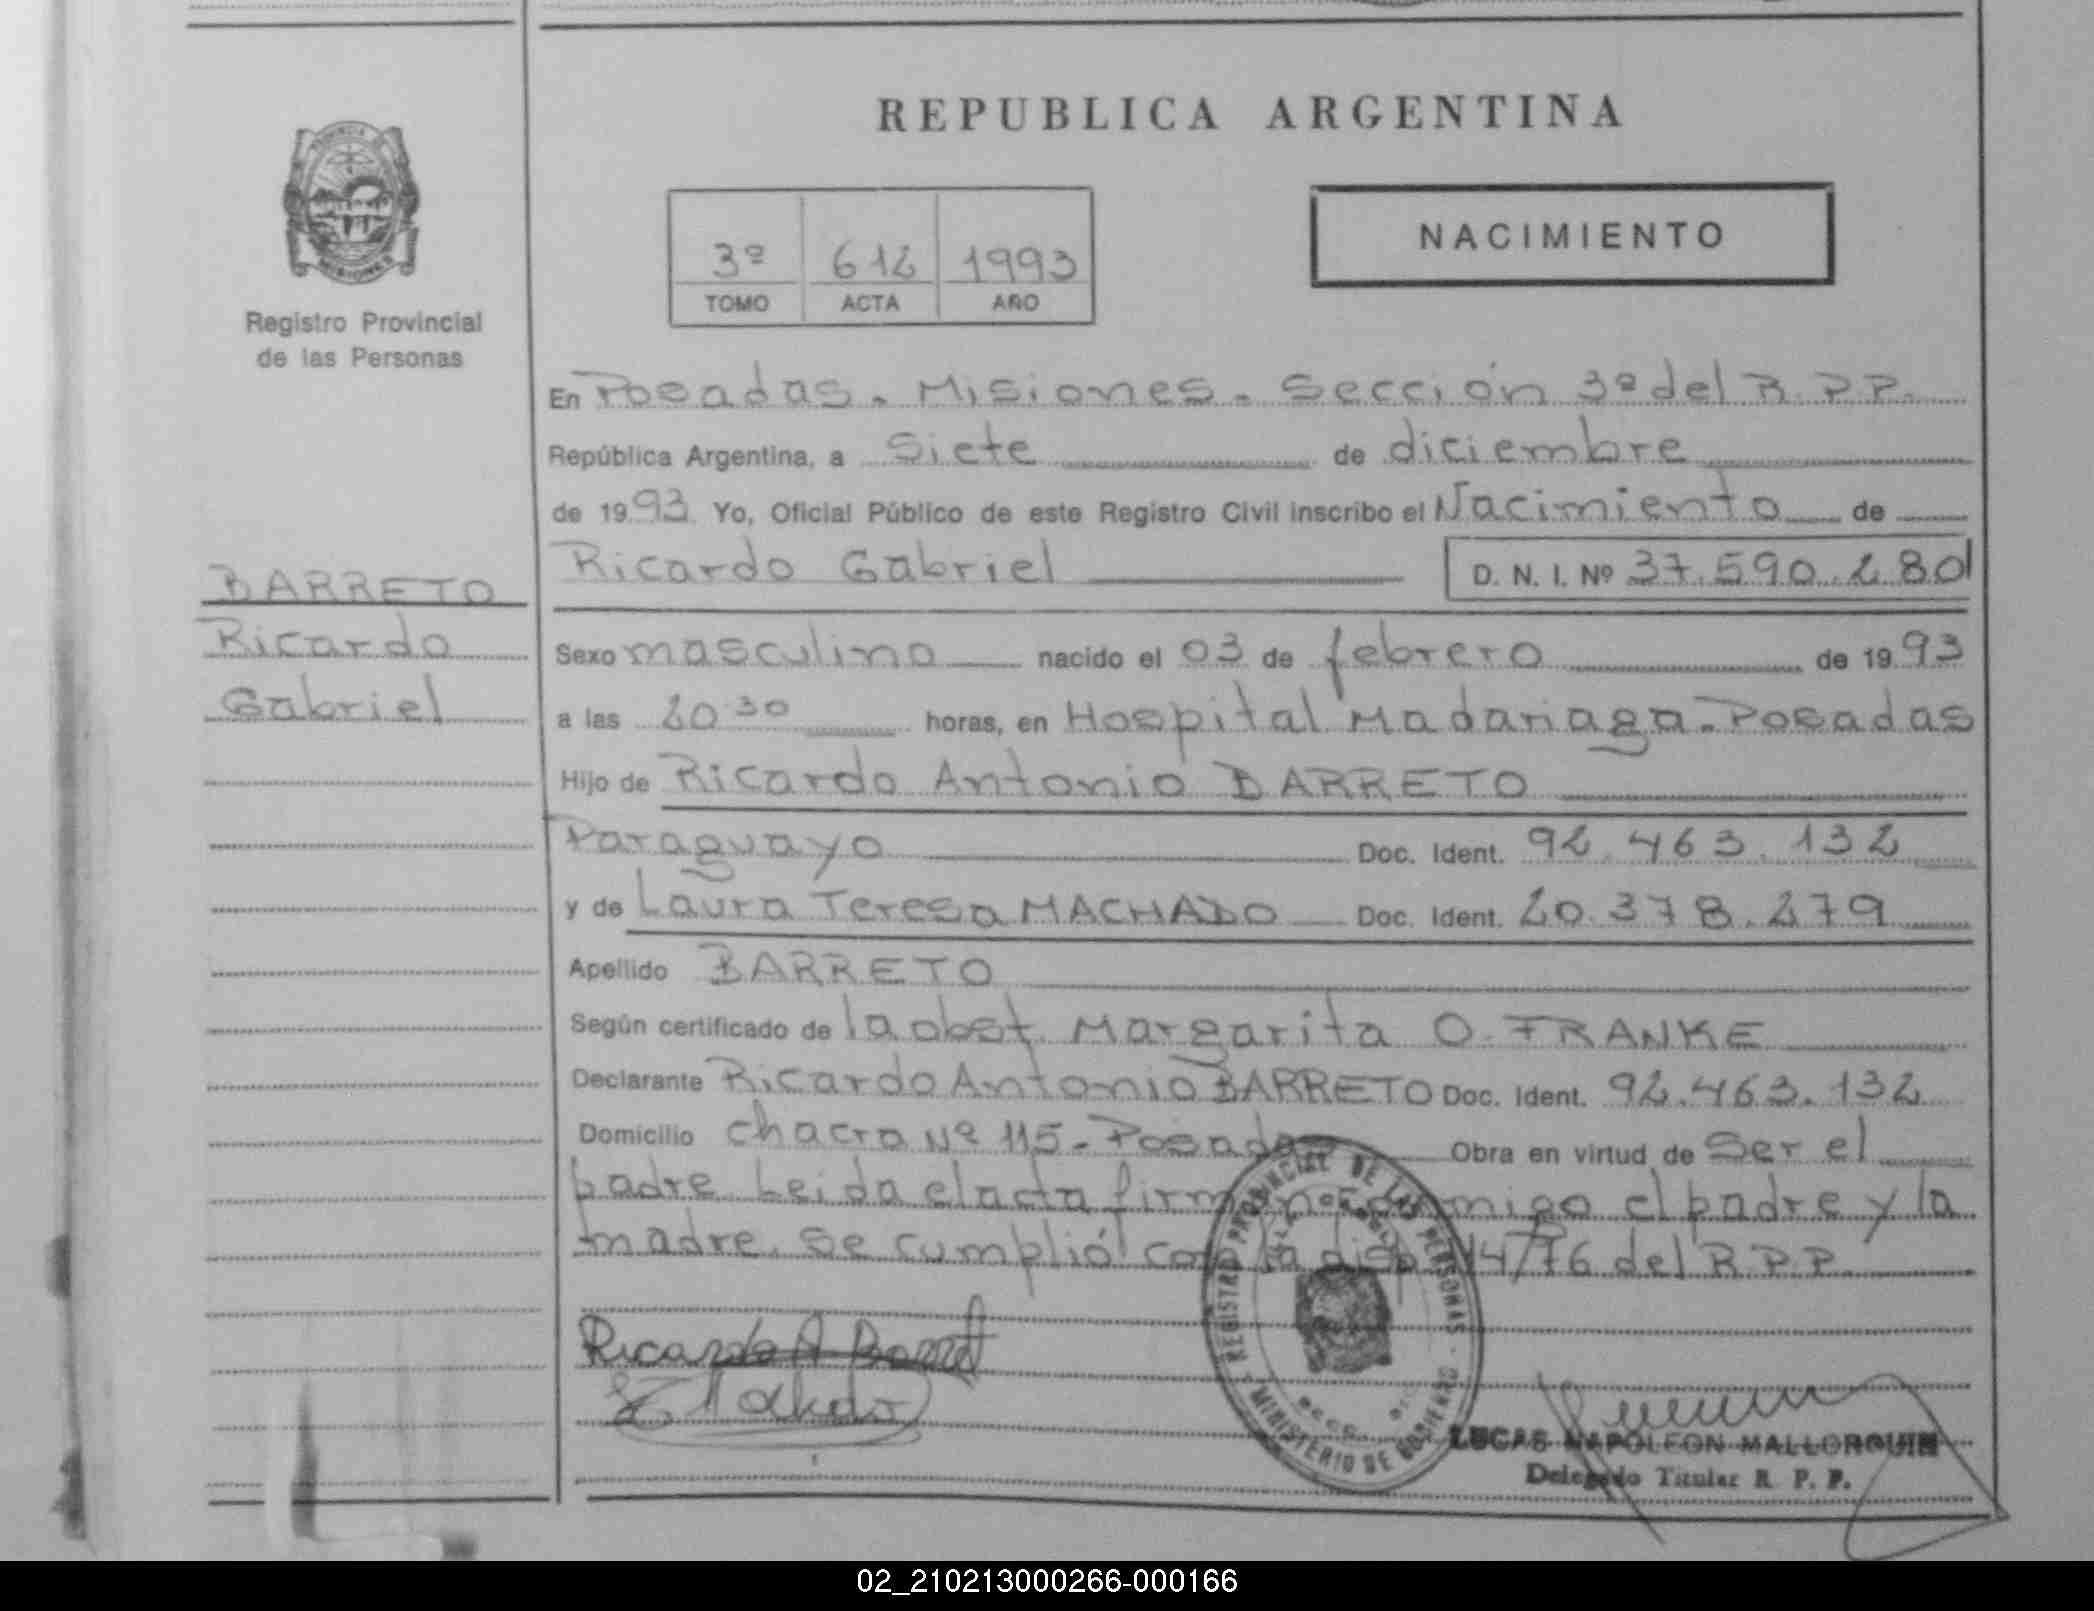 REPUBLICA ARGENTINA
NACIMIENTO
3º 612 1993
TOMO ACTA AÑO
PROVINCIA
MISIONES
Registro Provincial
de las Personas
BARRETO
Ricardo
Gabriel
En Posadas. Misiones. Sección 3º del R.P.P.
República Argentina, a Siete de diciembre
de 1993 Yo, Oficial Público de este Registro Civil inscribo el Nacimiento de
Ricardo Gabriel D. N. I. Nº 37.590.280
Sexo masculino nacido el 03 de febrero de 1993
a las 20 30 horas, en Hospital Madariaga-Posadas
Hijo de Ricardo Antonio BARRETO
Paraguayo Doc. Ident. 92.463.132
y de Laura Teresa MACHADO Doc. Ident. 20.378.279
Apellido BARRETO
Según certificado de la obst. Margarita O. FRANKE
Declarante Ricardo Antonio BARRETO Doc. Ident. 92.463.132
Domicilio chacra Nº 115-Posadas Obra en virtud de Ser el
padre. Leida el acta firman conmigo el padre y la
madre. Se cumplió con la disp. 14/76 del R.P.P.
REGISTRO PROVINCIAL DE LAS PERSONAS
MINISTERIO DE GOBIERNO
Ricardo A Barret
LUCAS NAPOLEON MALLORQUIN
Delegado Titular R. P. P.
02_210213000266-000166